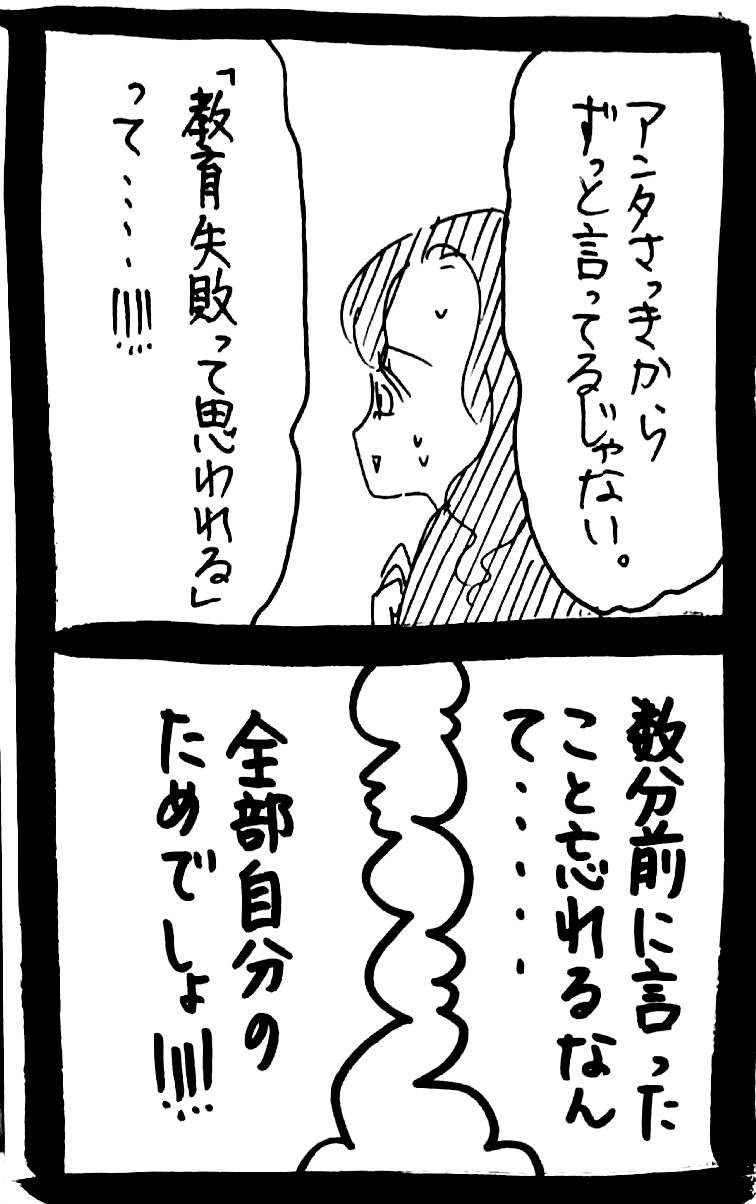 アンタさっきから
ずっと言ってるじゃない。
「教育失敗って思われる」
って・・・・!!!!
数分前に言った
こと忘れるなん
て・・・・・
全部自分の
ためでしょ!!!!